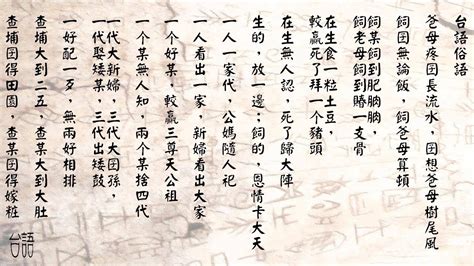 台語俗語
爸母疼囝長流水，囝想爸母樹尾風
飼囝無論飯，飼爸母算頓
飼某飼到肥朒朒，
飼老母飼到賰一支骨
在生食一粒土豆，
較贏死了拜一个豬頭
在生無人認，死了歸大陣
生的，放一邊；飼的，恩情卡大天
一人一家代，公媽隨人祀
一人看出一家，新婦看出大家
一个好某，較贏三尊天公祖
一个某無人知，兩个某捨四代
一代大新婦，三代大囝孫，
一代娶矮某，三代出矮鼓
一好配一歹，無兩好相排
查埔大到二五，查某大到大肚
查埔囝得田園，查某囝得嫁粧
台語